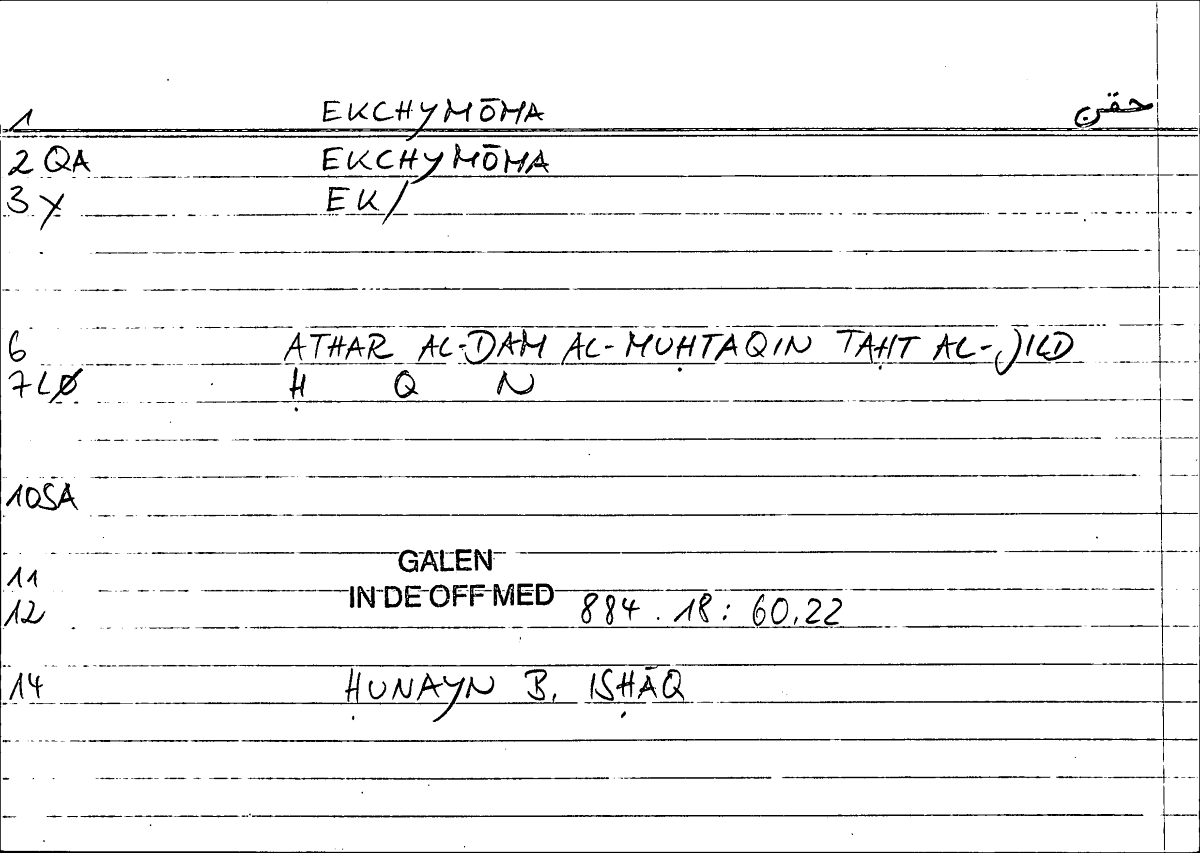 1 EKCHYMŌMA حقن
2 QA EKCHYMŌMA
3 Y EK/
6 ATHAR AL-DAM AL-MUḤTAQIN TAḤT AL-JILD
7 LØ Ḥ Q N
10SA
11 GALEN
12 IN DE OFF MED 884 . 18 : 60,22
14 ḤUNAYN B. ISḤĀQ